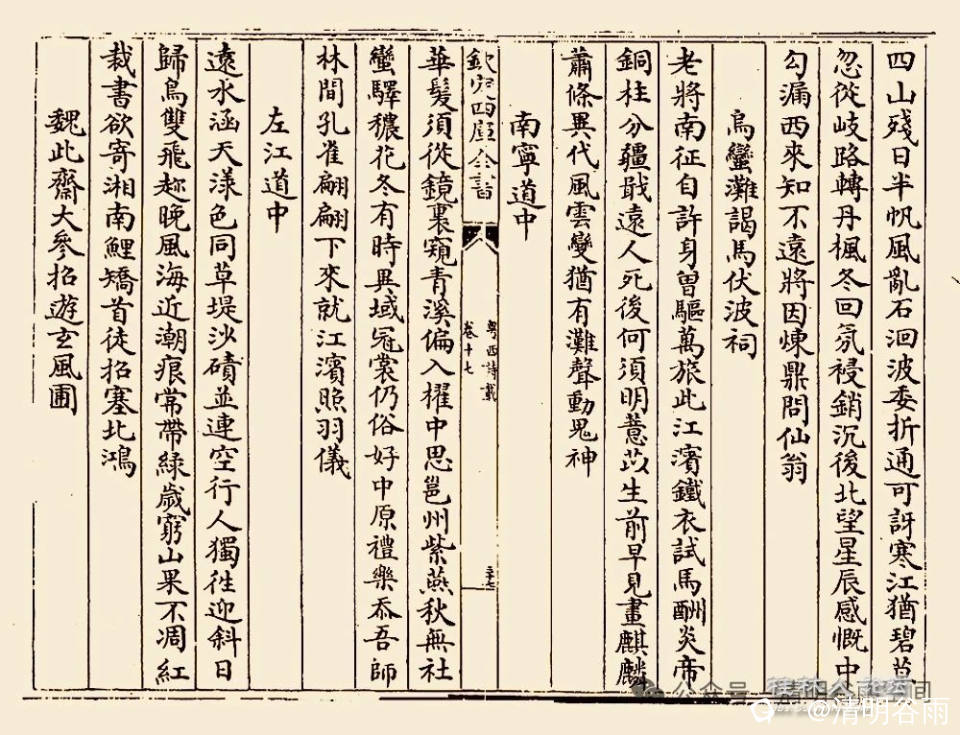 四山殘日半帆風亂石洄波委折通可訝寒江猶碧草
忽從岐路轉丹楓冬回氛祲銷沉後北望星辰感慨中
勾漏西來知不遠將因煉鼎問仙翁
烏蠻灘謁馬伏波祠
老將南征自許身曽驅萬旅此江濱鐵衣試馬酬炎帝
銅柱分疆戢遠人死後何須明薏苡生前早見畫麒麟
蕭條異代風雲變猶有灘聲動鬼神
南寧道中
欽定四庫全書
粤西詩載
卷十七
華髮須從鏡裏窺青溪偏入櫂中思邕州紫燕秋無社
蠻驛穠花冬有時異域冠裳仍俗好中原禮樂忝吾師
林間孔雀翩翩下來就江濱照羽儀
左江道中
遠水涵天漾色同草堤沙磧並連空行人獨徃迎斜日
歸鳥雙飛趂晚風海近潮痕常帶綠歲窮山果不凋紅
裁書欲寄湘南鯉矯首徒招塞北鴻
魏此齋大參招遊玄風圃
公众号
@清明谷雨